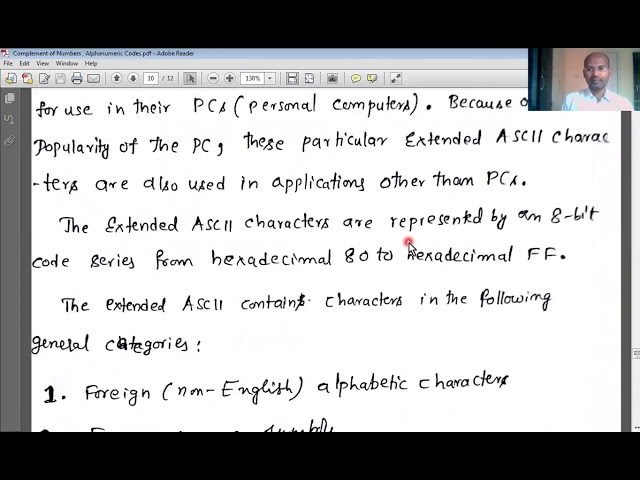 Complement of Numbers, Alphanumeric Codes.pdf - Adobe Reader
File Edit View Window Help
10 / 12 130%
for use in their PCs (personal computers). Because
Popularity of the PC, these particular Extended ASCII charac
-ters are also used in applications other than PCs.
The Extended ASCII characters are represented by an 8-bit
code series from hexadecimal 80 to hexadecimal FF.
The extended ASCII contains characters in the following
general categories:
1. Foreign (non-English) alphabetic characters